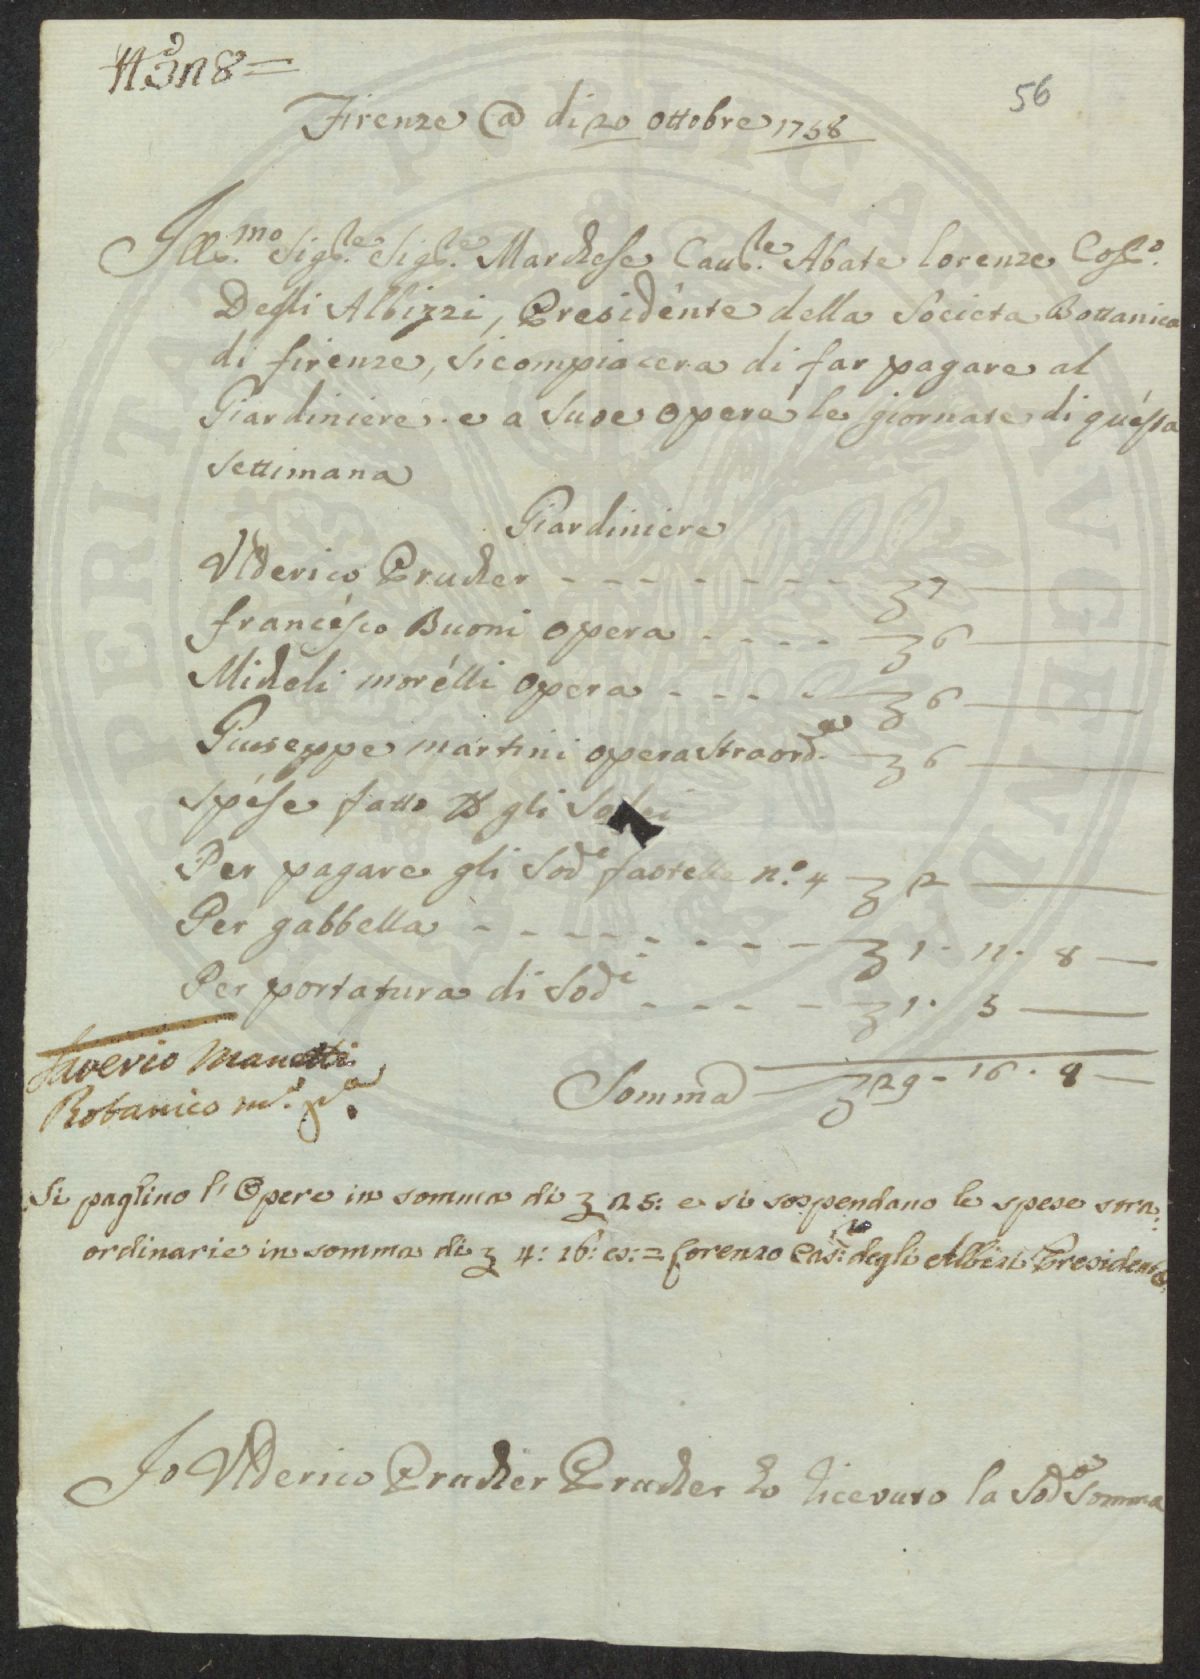 56
Firenze @ di 20 ottobre 1758
Ill.mo Sig.re Sig.re Marchese Cau.re Abate lorenze
Degli Albizzi, Presidente della Societa Bottanica
di firenze, si compiacera di far pagare al
Giardiniere e a Suoe Opere le giornate di questa
settimana
Giardiniere
Vlderico Prucher - - - - - - - - 7
francesco Buoni opera - - - - 6
Micheli morelli opera - - - - 6
Giuseppe martini opera straord.a 6
spese fatto gli
Per pagare gli Sod.i fastelle n.o 4 2
Per gabbella - - - - - - - - 1 - 11 - 8
Per portatura di Sod.i - - - - 1 - 5
Somma 29 - 16 - 8
Saverio Manetti
Botanico m.o p.a
Si paghino l'Opere in somma di 25: e si sospendano le spese stra:
ordinarie in somma di 4: 16: es: = Lorenzo Cas:to degli Albizi Presidente
Io Vlderico Prucher Prucher ho ricevuto la Sod.a Somma
PERITAT PVBLICAE AVGENDAE